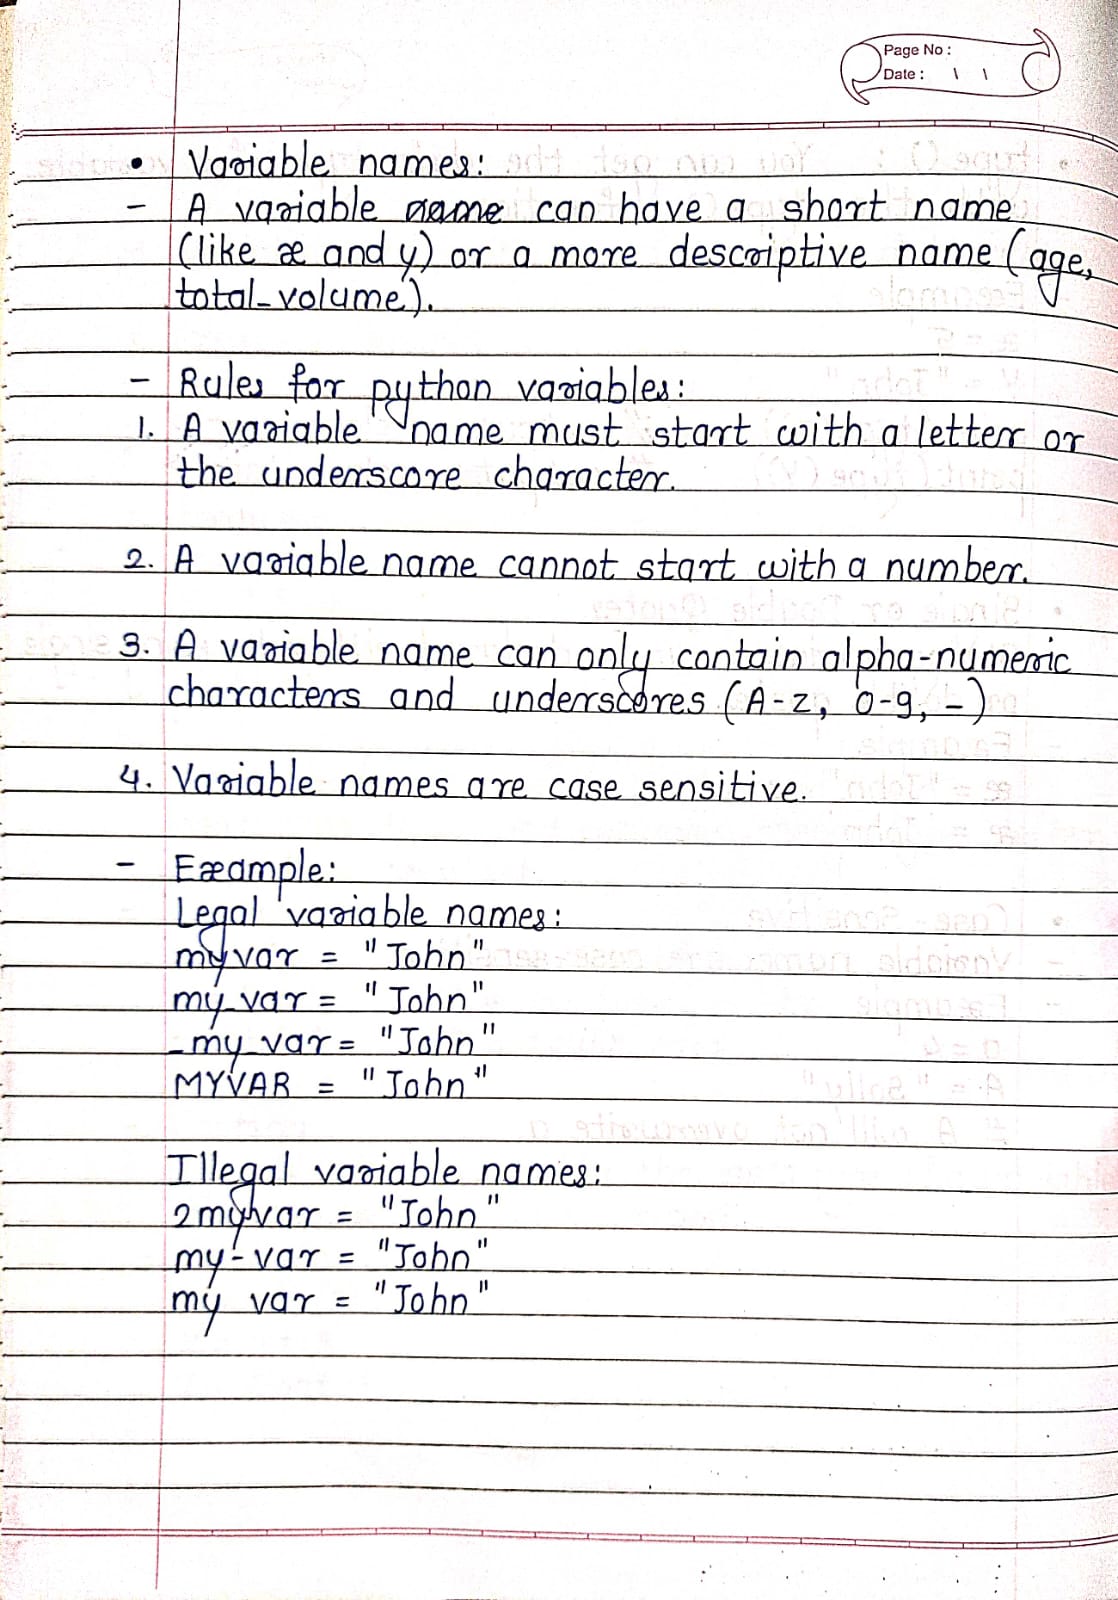 Page No :
Date : \ \
• Variable names:
- A variable name can have a short name
(like x and y) or a more descriptive name (age,
total_volume).
- Rules for python variables:
1. A variable name must start with a letter or
the underscore character.
2. A variable name cannot start with a number.
3. A variable name can only contain alpha-numeric
characters and underscores (A-z, 0-9, _)
4. Variable names are case sensitive.
- Example:
Legal variable names:
myvar = "John"
my_var = "John"
_my_var = "John"
MYVAR = "John"
Illegal variable names:
2myvar = "John"
my-var = "John"
my var = "John"